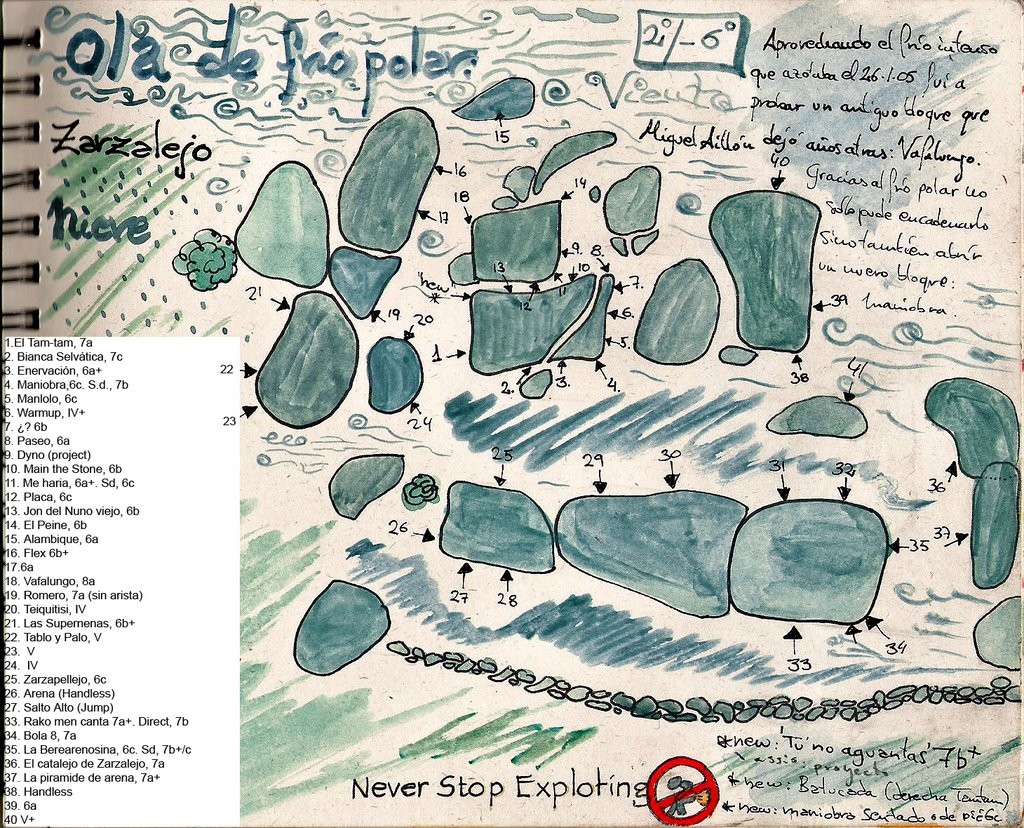 Ola de frío polar:
2°/-6°
Viento
Zarzalejo
Nieve
Aprovechando el frío intenso
que azotaba el 26.1.05 fui a
probar un antiguo bloque que
Miguel Aillón dejó años atras: Vafalungo.
Gracias al frío polar no
sólo pude encadenarlo
sino también abrir
un nuevo bloque:
Maniobra.
15
16
17
18
14
40
"new"
*
13
12
11
10
9.
8.
7.
6.
5.
4.
3.
2.
1
19
20
21
22
23
24
39
38
41
25
29
30
31
32
36
26
35
37
27
28
33
34
1.El Tam-tam, 7a
2. Bianca Selvática, 7c
3. Enervación, 6a+
4. Maniobra,6c. S.d., 7b
5. Manlolo, 6c
6. Warmup, IV+
7. ¿? 6b
8. Paseo, 6a
9. Dyno (project)
10. Main the Stone, 6b
11. Me haria, 6a+. Sd, 6c
12. Placa, 6c
13. Jon del Nuno viejo, 6b
14. El Peine, 6b
15. Alambique, 6a
16. Flex 6b+
17.6a
18. Vafalungo, 8a
19. Romero, 7a (sin arista)
20. Teiquitisi, IV
21. Las Supernenas, 6b+
22. Tablo y Palo, V
23.  V
24.  IV
25. Zarzapellejo, 6c
26. Arena (Handless)
27. Salto Alto (Jump)
33. Rako men canta 7a+. Direct, 7b
34. Bola 8, 7a
35. La Berearenosina, 6c. Sd, 7b+/c
36. El catalejo de Zarzalejo, 7a
37. La piramide de arena, 7a+
38. Handless
39. 6a
40 V+
Never Stop Exploting
*new: 'Tú no aguantas' 7b+
assis: proyecto
*new: Batucada (derecha Tamtam)
*new: maniobra sentado o de pie 6c